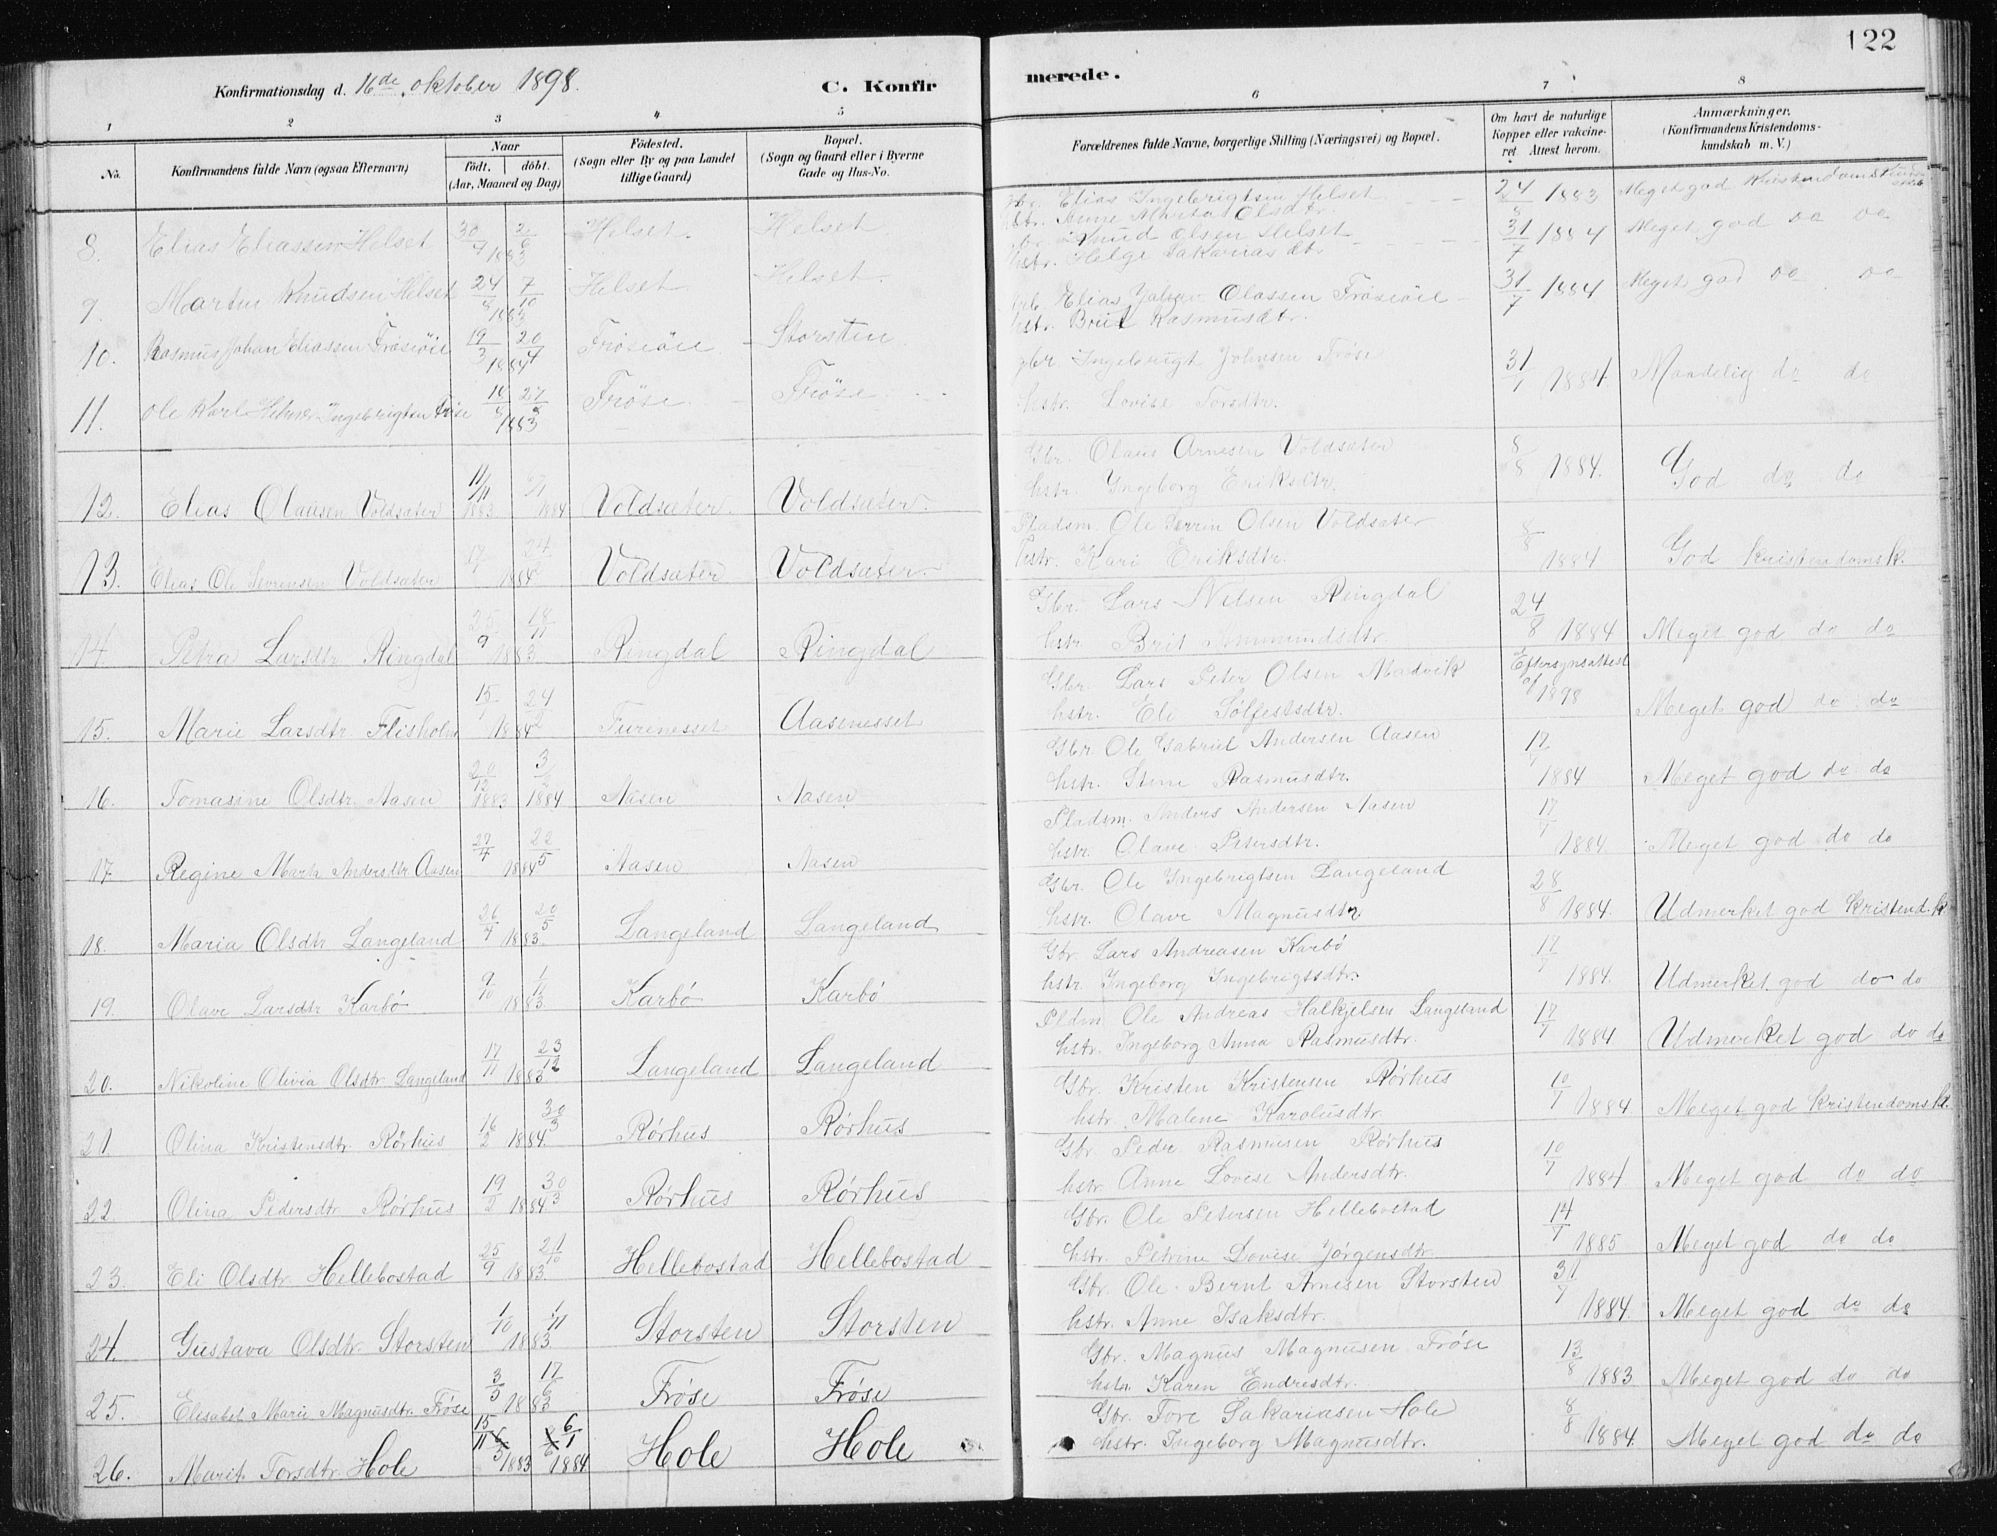 122
Konfirmationsdag d. 16de oktober 1898.
C. Konfirmerede.
1 2 3 4 5 6 7 8
No. Konfirmandens fulde Navn (ogsaa Efternavn) Naar Födt. döbt. (Aar, Maaned og Dag) Födested. (Sogn eller By og paa Landet tillige Gaard) Bopæl. (Sogn og Gaard eller i Byerne Gade og Hus-No. Forældrenes fulde Navne, borgerlige Stilling (Næringsvei) og Bopæl. Om havt de naturlige Kopper eller vakcineret. Attest herom. Anmærkninger. (Konfirmandens Kristendomskundskab m. V.)
8. Elias Eliassen Helset 1883 Helset. Helset. Elias Ingebrigtsen Helset 24/8 1883 Meget god
Anne Marta Olsdtr.
9. Martin Knudsen Helset 24/8 7/10 1883 Helset Helset. Knud Olsen Helset 31/7 1884 Meget god do do
Helge Sakariasdtr
10. Rasmus Johan Eliassen Frøsiøie 19/3 20/4 1884 Frøsiøie Storsten Elias Johan Olassen Frøsiøie 31/7 1884 Meget god do do
hstr. Brit Rasmusdtr.
11. Ole Karl Ingebrigtsen Frøse 27 1883 Frøse Frøse gbr Ingebrigt Johnsen Frøse 31/7 1884. Maadelig do do
hstr. Lovise Torsdtr.
12. Elias Olausen Voldsæter 11/11 1883 1884 Voldsæter. Voldsæter. Gbr. Olaus Arnesen Voldsæter 8/8 1884. God do do
hstr. Ingeborg Eriksdtr.
13. Elias Ole Severinsen Voldsæter 1884 Voldsæter Voldsæter Pladsm. Ole Olsen Voldsæter 8/8 1884 God Kristendomsk.
hstr. Kari Eriksdtr.
14. Petra Larsdtr Ringdal 25/9 18/11 1883 Ringdal Ringdal Gbr. Lars Nilsen Ringdal 24/8 1884 Meget god do do
hstr. Brit Ammundsdtr
15. Marie Larsdtr Flisholm 1884 Furenesset Aasenesset Gbr. Lars Peter Olsen Madvik Eftersynsattest af 1898 Meget god do do
hstr. Eli Sølfestsdtr.
16. Tomasine Olsdtr. Aasen 20/12 1883 3/2 1884 Aasen Aasen Gbr. Ole Gabriel Andersen Aasen 17/7 1884 Meget god do do
hstr. Stine Rasmusdtr.
17 Regine Marta Andersdtr Aasen 27/4 22/5 1884 Aasen Aasen Pladsm. Anders Andersen Aasen 17/7 1884 Meget god do do
hstr. Olave Petersdtr.
18. Maria Olsdtr Langeland 20/5 1883 Langeland Langeland Gbr. Ole Ingebrigtsen Langeland 28/8 1884. Udmerket god Kristend.k.
hstr. Olave Magnusdtr
19. Olave Larsdtr Karbø 9/10 1/11 1883 Karbø Karbø Gbr. Lars Andreasen Karbø 17/7 1884. Udmerket god do do
hstr. Ingeborg Ingebrigtsdtr.
20. Nikoline Olivia Olsdtr. Langeland 17/11 23/12 1883 Langeland Langeland Pldm. Ole Andreas Halkjelsen Langeland 17/7 1884 Udmerket god do do
hstr. Ingeborg Anna Rasmusdtr.
21. Olina Kristensdtr. Rørhus 16/2 30/3 1884. Rørhus Rørhus Gbr. Kristen Kristensen Rørhus 10/7 1884 Meget god Kristendomsk.
hstr. Malene Karolusdtr
22. Olina Pedersdtr Rørhus 19/2 30/3 1884 Rørhus Rørhus Gbr. Peder Rasmusen Rørhus 10/7 1884. Meget god do do
hstr. Anne Lovise Andersdtr.
23. Eli Olsdtr. Hellebostad 25/9 21/10 1883 Hellebostad Hellebostad Gbr. Ole Petersen Hellebostad 14/7 1885 Meget god do do
hstr. Petrine Lovise Jørgensdtr.
24. Gustava Olsdtr. Storsten 1/10 1/11 1883. Storsten Storsten Gbr. Ole Bernt Arnesen Storsten 31/7 1884. Meget god do do
hstr. Anne Isaksdtr.
25. Elisabet Marie Magnusdtr. Frøse 3/5 17/6 1883 Frøse Frøse Gbr. Magnus Magnusen Frøse 13/8 1883 Meget god do do
hstr. Karen Endresdtr.
26. Marit Torsdtr Hole 15/11 1883 6/1 1884 Hole Hole Gbr. Tore Sakariasen Hole 8/8 1884. Meget god do do
hstr. Ingeborg Magnusdtr.